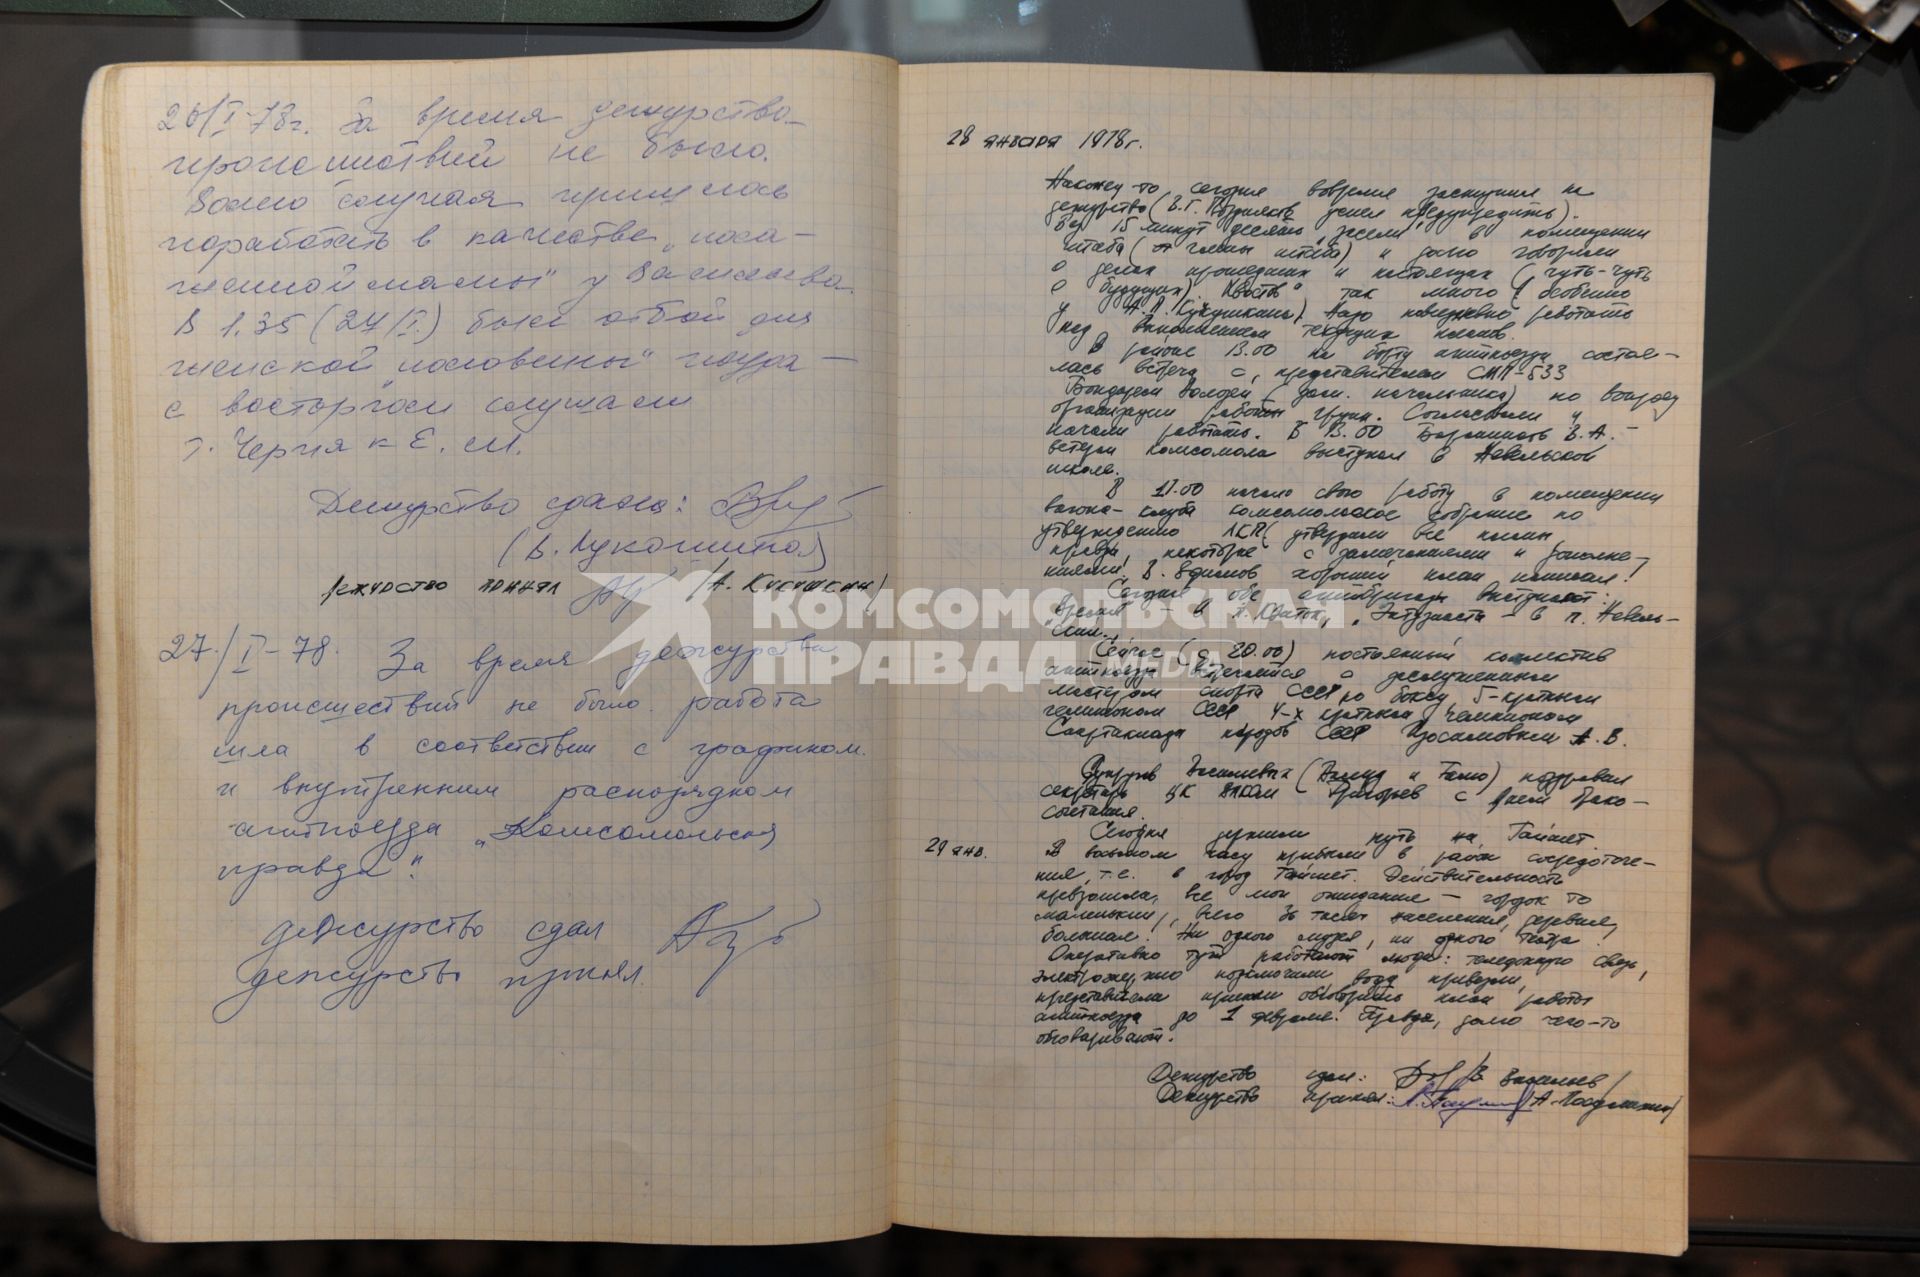 26/I-78г. За время дежурства
происшествий не было.
Волею случая пришлось
поработать в качестве „поса-
женной мамы" у Васильева.
В 1.35 (27/I.) был отбой для
женской „половины"
с восторгом слушали
т. Черняк Е. М.
Дежурство сдала:
(В. Лукошина)
Дежурство принял /А. Кукушкин/
27./I-78. За время дежурства
происшествий не было. Работа
шла в соответствии с графиком
и внутренним распорядком
агитпоезда „Комсомольская
правда".
дежурство сдал
дежурство принял.
28 января 1978г.
Наконец-то сегодня вовремя заступил на
дежурство (В.Г. успел предупредить).
15 минут в помещении
штаба (от членов штаба) и долго говорили
о делах прошедших и настоящих (чуть-чуть
о будущих). „Хвостов" так много (особенно
у А.П. Кукушкина). Надо работать
над выполнением текущих планов.
В районе 13.00 на борту агитпоезда состоя-
лась встреча с представителем СМП-533
Бондарем Володей (зам. начальника) по вопросу
организации работы групп. Согласовали и
начали работать. В 13.00 В.А. -
ветеран комсомола выступал в Невельской
школе.
В 17.00 начало свою работу в помещении
вагона-клуба комсомольское собрание по
утверждению ЛКП (утвердили все планы,
правда, некоторые с замечаниями и дополне-
ниями. В. Ефимов хороший план написал!
Сегодня обе агитбригады выступают:
„Время" - в п. Квиток, „Энтузиасты" - в п. Невель-
ская.
Сейчас (с 20.00) постоянный коллектив
агитпоезда встречается с заслуженным
мастером спорта СССР по боксу, 5-кратным
чемпионом СССР 4-х кратным чемпионом
Спартакиады народов СССР Изосимовым А.В.
Супругов Васильевых (Володю и Галю) поздравил
секретарь ЦК ВЛКСМ Григорьев с Днем брако-
сочетания.
Сегодня держим путь на Тайшет.
29 янв.
В восьмом часу прибыли в район сосредоточе-
ния, т.е. в город Тайшет. Действительность
превзошла все мои ожидания - городок то
маленький, всего 36 тысяч населения, деревня
большая! Ни одного музея, ни одного театра!
Оперативно тут работают люди: телефонную связь,
электроэнергию подключили, воду привезли,
представители приехали обговорить план работы
агитпоезда до 1 февраля. Правда, долго чего-то
обговаривают.
Дежурство сдал: /В. Васильев/
Дежурство принял: /А.
КОМСОМОЛЬСКАЯ
ПРАВДА MEDIA